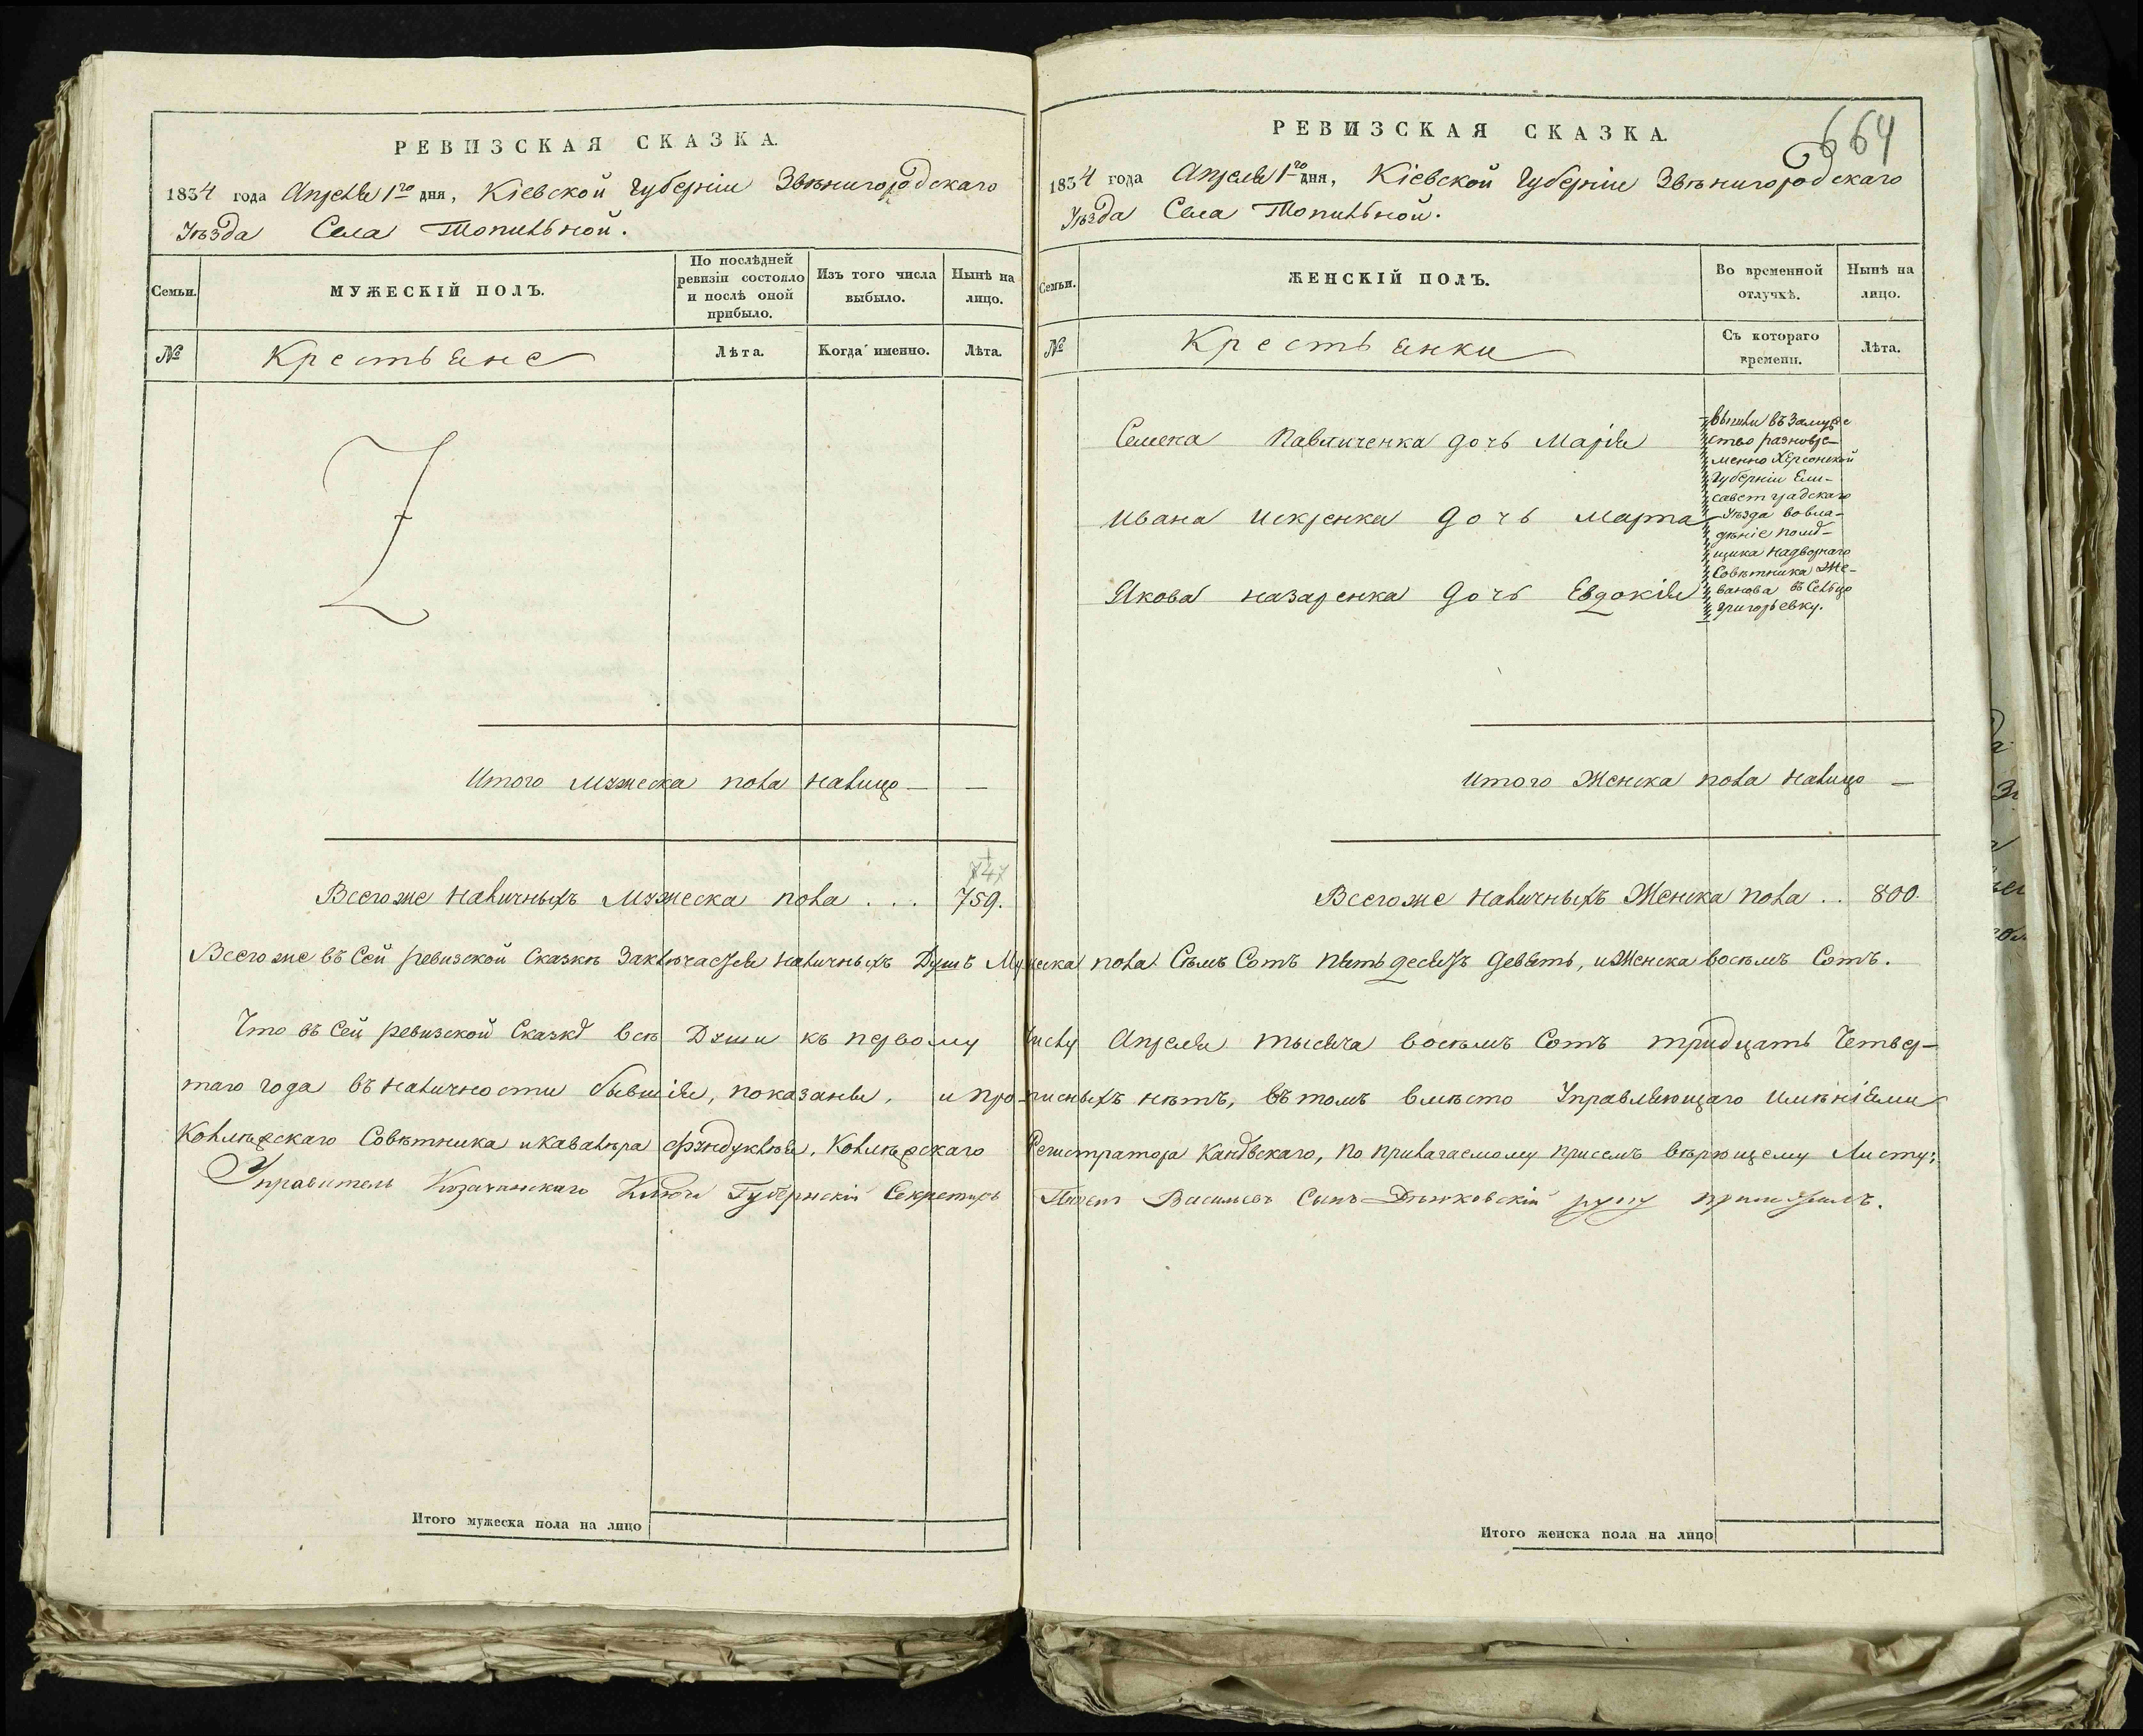 РЕВИЗСКАЯ СКАЗКА.
1834 года Апреля 1го дня, Кіевской Губерніи Звѣнигородскаго
Уѣзда Села Топильной.
Семьи.
МУЖЕСКІЙ ПОЛЪ.
По послѣдней
ревизіи состояло
и послѣ оной
прибыло.
Изъ того числа
выбыло.
Нынѣ на
лицо.
№
Крестьяне
Лѣта.
Когда именно.
Лѣта.
Итого мужеска пола налицо — —
747
Всегоже наличныхъ Мужеска пола . . . 759.
664
РЕВИЗСКАЯ СКАЗКА.
1834 года Апреля 1го дня, Кіевской Губерніи Звѣнигородскаго
Уѣзда Села Топильной.
Семьи.
ЖЕНСКІЙ ПОЛЪ.
Во временной
отлучкѣ.
Нынѣ на
лицо.
№
Крестьянки
Съ котораго
времени.
Лѣта.
Семена Павличенка дочь Марія
Ивана Искренка дочь Марта
Якова Назаренка дочь Евдокія
вышли въ Замуже
ство разновре-
менно Херсонской
Губерніи Ели-
саветградскаго
Уѣзда вовла-
дѣніе помѣ-
щика надворнаго
Совѣтника Же-
ванова въ Сельцо
Григорьевку.
Итого Женска пола налицо —
Всегоже наличныхъ Женска пола . . 800.
Всего же въ Сей ревизской Сказкѣ Заключается наличныхъ Душъ Мужеска пола Сѣмъ Сотъ пять десятъ девять, и Женска восѣмъ Сотъ.
Что въ Сей ревизской Сказкѣ всѣ Души къ первому Числу Апреля тысяча восѣмъ Сотъ тридцать Четвер-
таго года въ наличности бывшія, показаны, и прописныхъ нѣтъ, въ томъ вмѣсто Управляющаго имѣніями
Колѣжскаго Совѣтника и кавалѣра Фундуклѣя, Колѣжскаго Регистратора Кандѣвскаго, по прилагаемому присемъ вѣрющему Листу;
Управитель Казачанскаго Ключа Губернскій Секретарь Васильевъ Сынъ руку приложилъ.
Итого мужеска пола на лицо
Итого женска пола на лицо